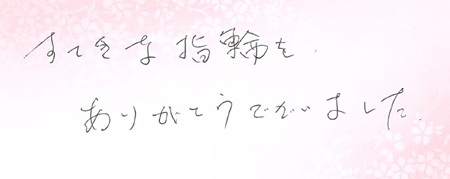 すてきな指輪を
ありがとうございました